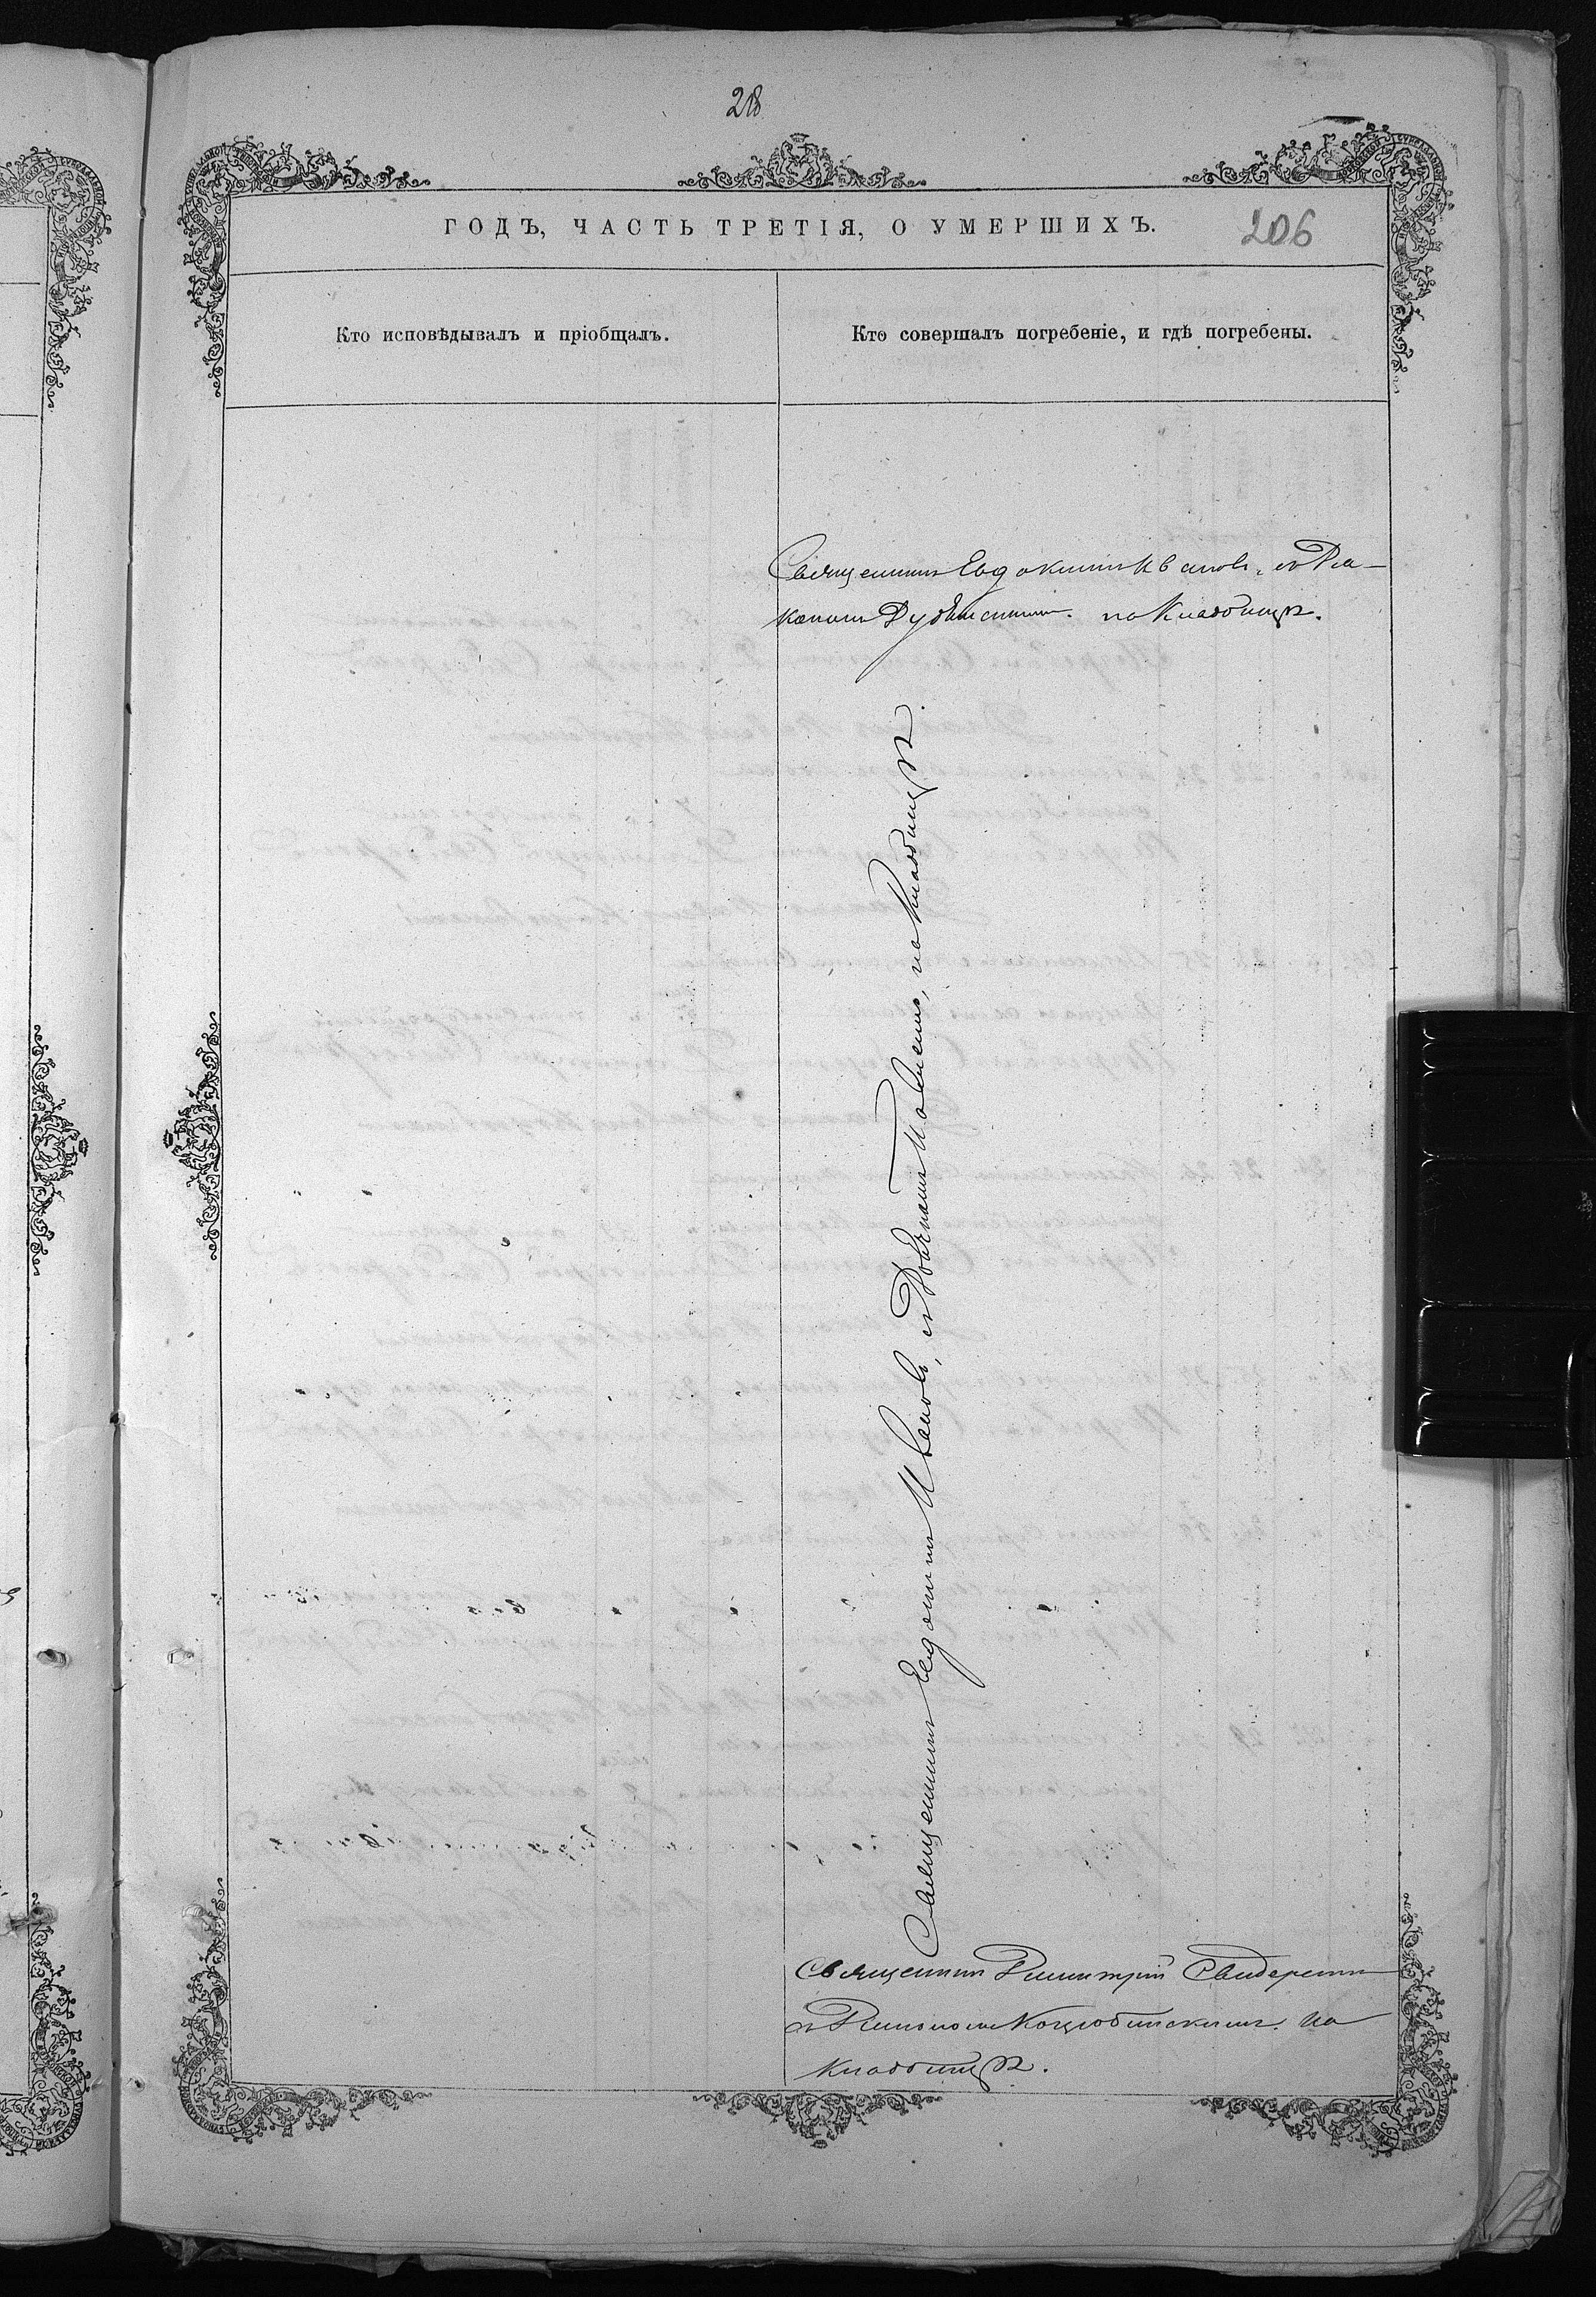 218
ГОДЪ, ЧАСТЬ ТРЕТІЯ, О УМЕРШИХЪ.
206
Кто исповѣдывалъ и пріобщалъ.
Кто совершалъ погребеніе, и гдѣ погребены.
Священникъ Евдокимъ Ивановъ, съ Діа-
кономъ на Кладбищѣ.
Священникъ Евдокимъ Ивановъ, съ на Кладбищѣ.
Священникъ Димитрій
съ Діакономъ Коцюбинскимъ. на
кладбищѣ.